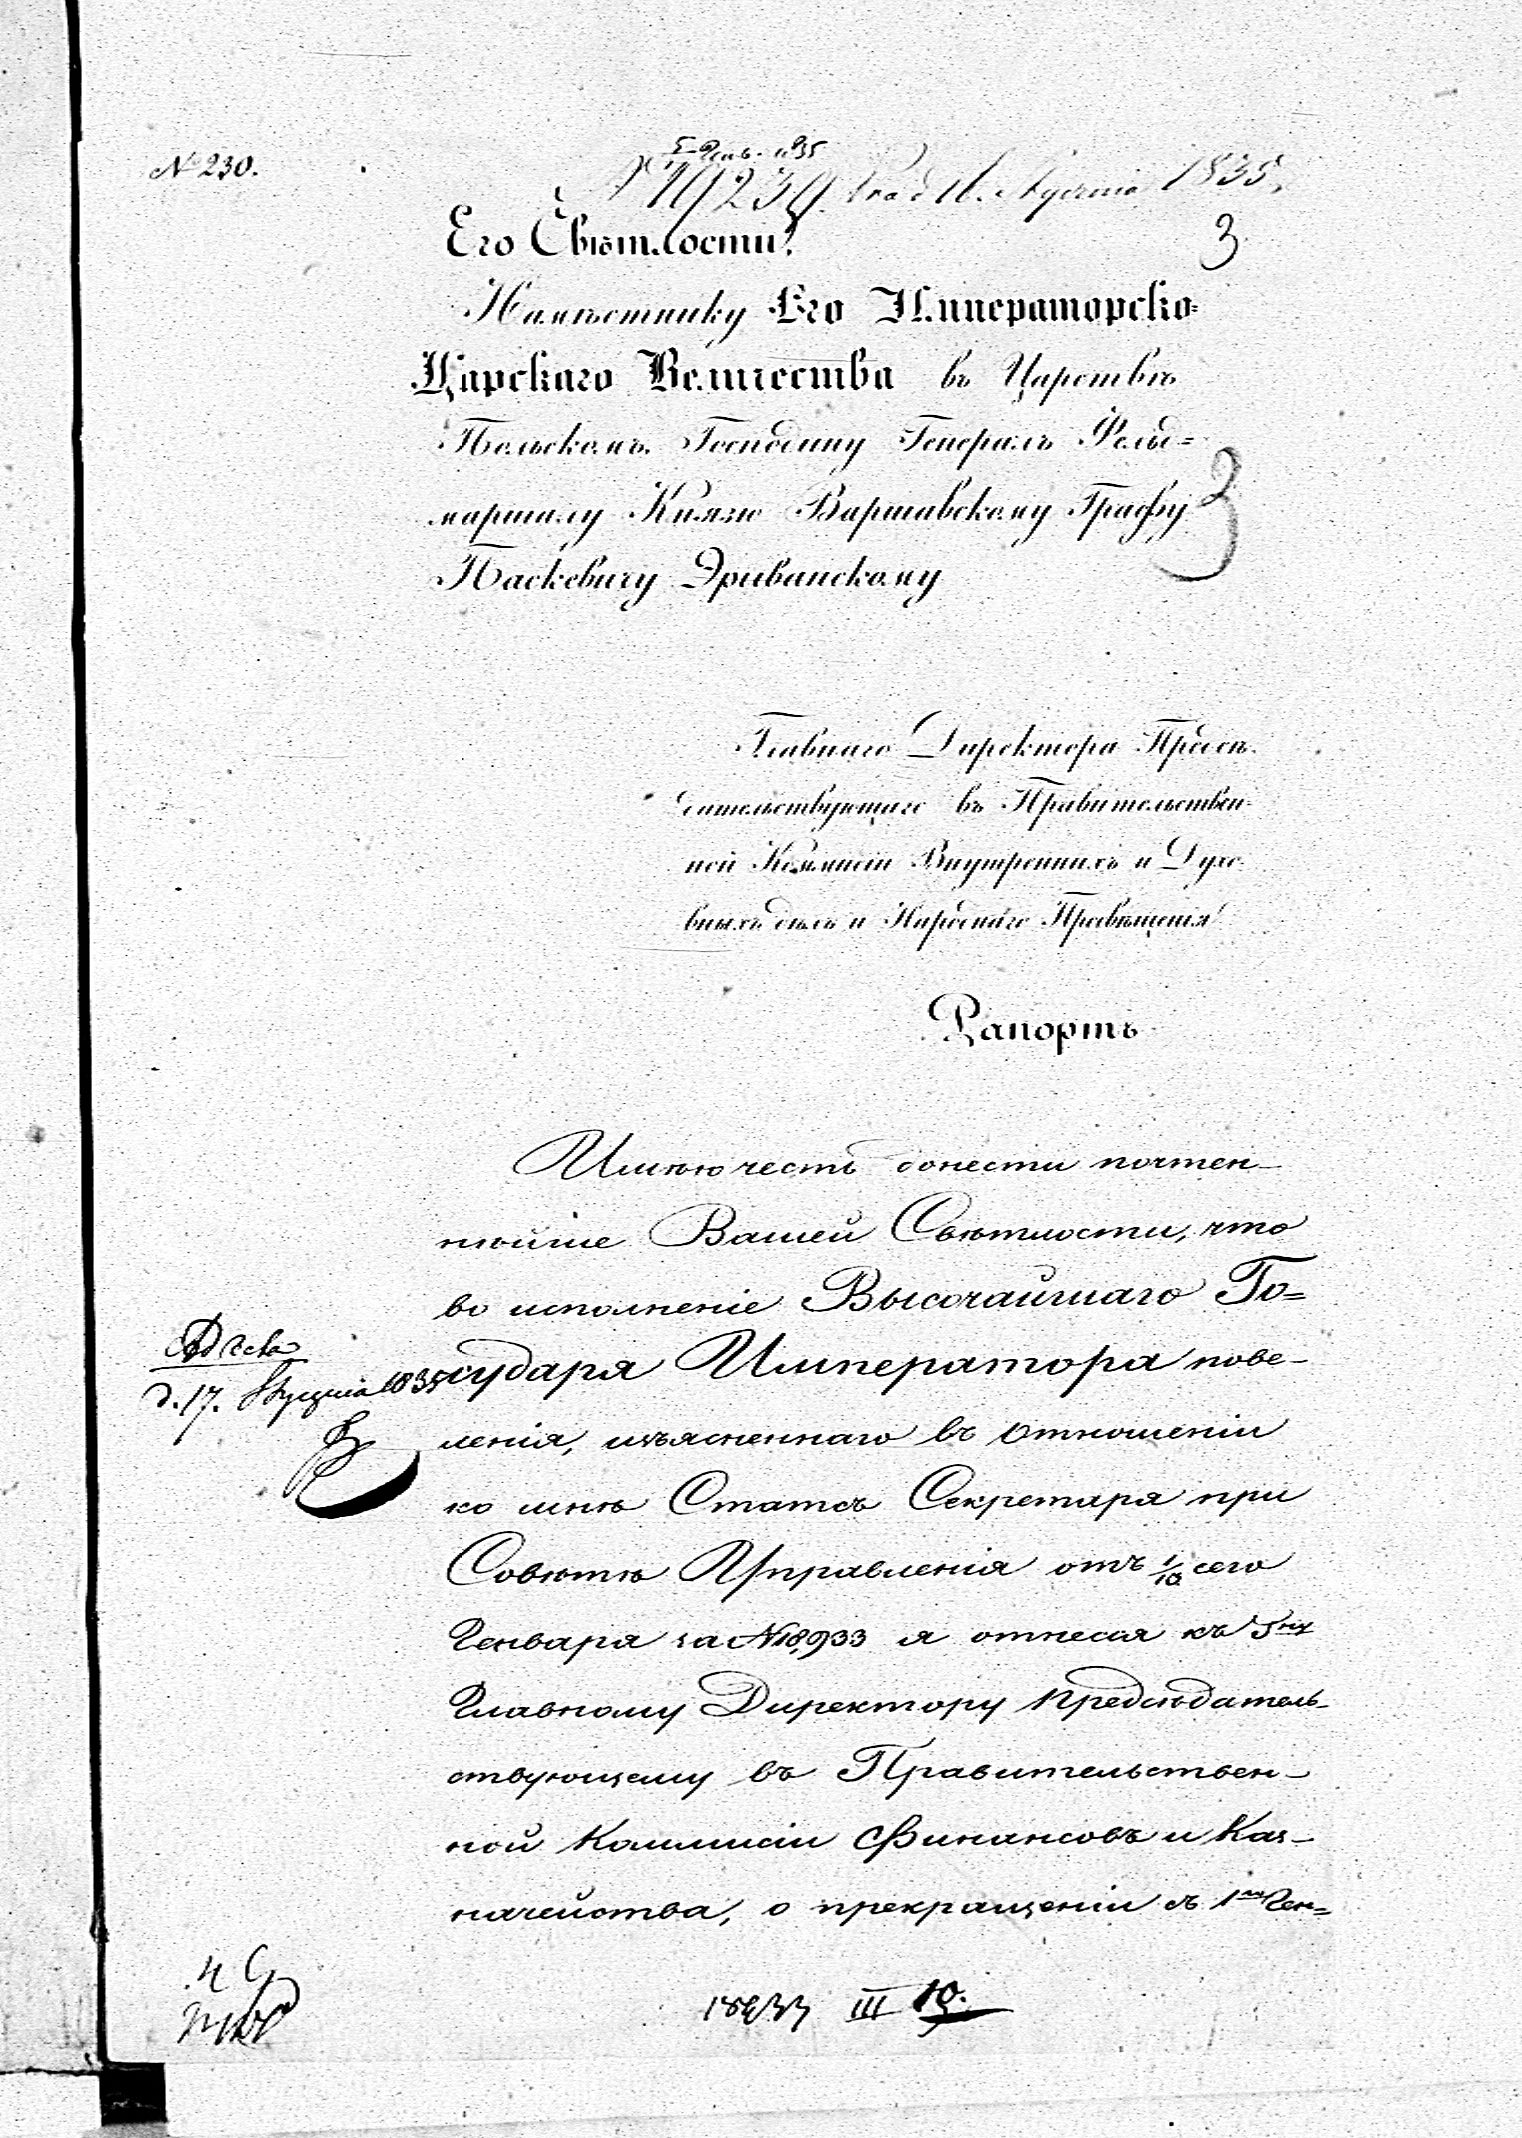 № 230.
19239. 1835.
Его Свѣтлости,
3
Намѣстнику Его Императорско-
Царскаго Величества въ Царствѣ
Польскомъ, Господину Генералъ Фельд=
маршалу Князю Варшавскому Графу
3
Паскевичу Эриванскому
Главнаго Директора Предсѣ-
дательствующаго въ Правительствен-
ной Коммисіи Внутреннихъ и Духо-
вныхъ дѣлъ и Народнаго Просвѣщенія
Рапортъ
Имѣю честь донести почтен-
нѣйше Вашей Свѣтлости, что
во исполненіе Высочайшаго Го=
сударя Императора пове-
д. 17. Stycznia 1835
ленія, изъясненнаго въ отношеніи
ко мнѣ Статсъ Секретаря при
Совѣтѣ Управленія отъ 1/13 сего
Генваря за № 18,933 я отнесся къ
Главному Директору Предсѣдатель-
ствующему въ Правительствен-
ной Коммисіи Финансовъ и Каз-
начейства, о прекращеніи съ 1го Ген=
18933 III 10.